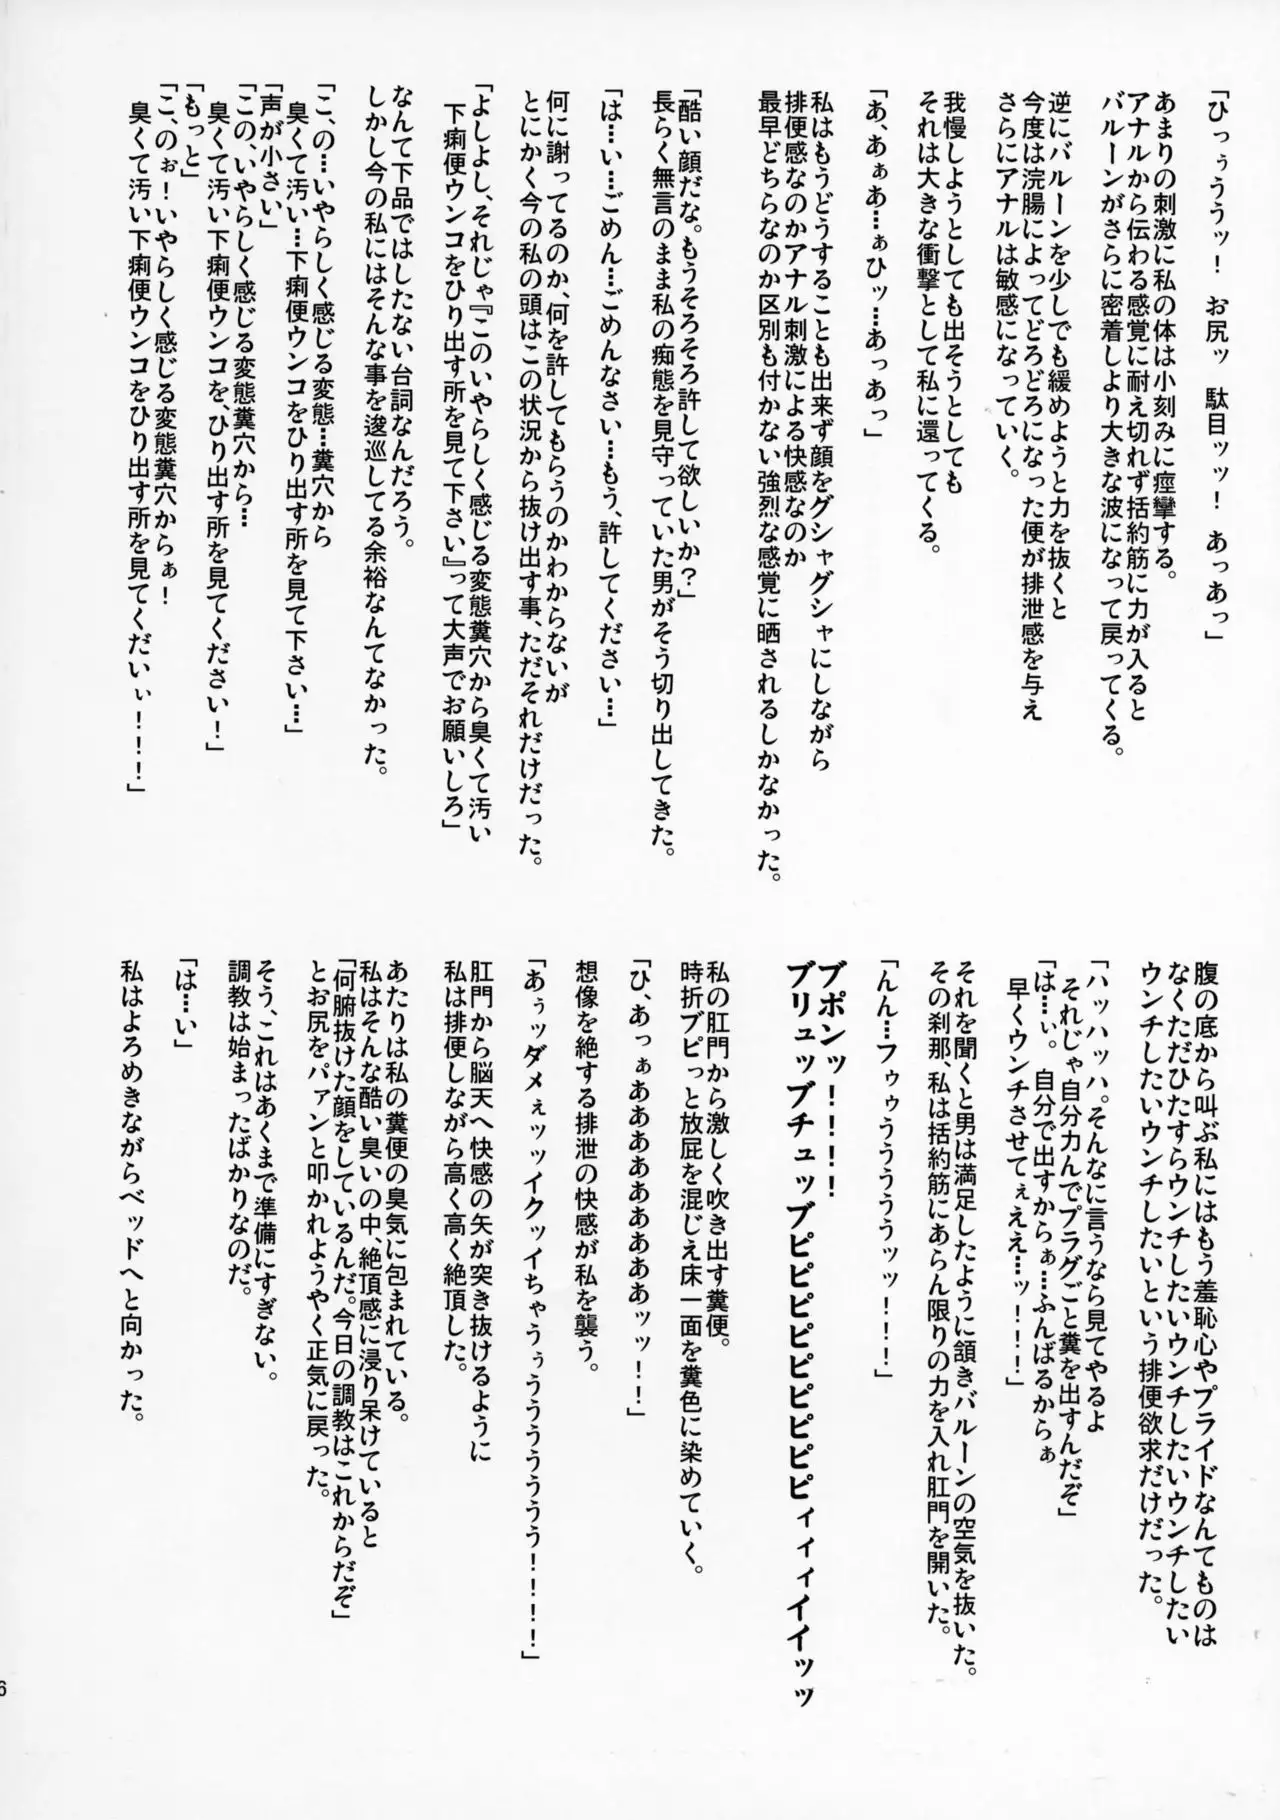 「ひっぅううッ！　お尻ッ　駄目ッッ！　あっあっ」
あまりの刺激に私の体は小刻みに痙攣する。
アナルから伝わる感覚に耐え切れず括約筋に力が入ると
バルーンがさらに密着しより大きな波になって戻ってくる。
逆にバルーンを少しでも緩めようと力を抜くと
今度は浣腸によってどろどろになった便が排泄感を与え
さらにアナルは敏感になっていく。
我慢しようとしても出そうとしても
それは大きな衝撃として私に還ってくる。
「あ、あぁあ…ぁひッ…あっあっ」
私はもうどうすることも出来ず顔をグシャグシャにしながら
排便感なのかアナル刺激による快感なのか
最早どちらなのか区別も付かない強烈な感覚に晒されるしかなかった。
「酷い顔だな。もうそろそろ許して欲しいか？」
長らく無言のまま私の痴態を見守っていた男がそう切り出してきた。
「は…い…ごめん…ごめんなさい…もう、許してください…」
何に謝ってるのか、何を許してもらうのかわからないが
とにかく今の私の頭はこの状況から抜け出す事、ただそれだけだった。
「よしよし、それじゃ『このいやらしく感じる変態糞穴から臭くて汚い
下痢便ウンコをひり出す所を見て下さい』って大声でお願いしろ」
なんて下品ではしたない台詞なんだろう。
しかし今の私にはそんな事を逡巡してる余裕なんてなかった。
「こ、の…いやらしく感じる変態…糞穴から
臭くて汚い…下痢便ウンコをひり出す所を見て下さい…」
「声が小さい」
「この、いやらしく感じる変態糞穴から…
臭くて汚い下痢便ウンコを、ひり出す所を見てください！」
「もっと」
「こ、のぉ！いやらしく感じる変態糞穴からぁ！
臭くて汚い下痢便ウンコをひり出す所を見てくだいぃ！！！」
腹の底から叫ぶ私にはもう羞恥心やプライドなんてものは
なくただひたすらウンチしたいウンチしたいウンチしたい
ウンチしたいウンチしたいという排便欲求だけだった。
「ハッハッハ。そんなに言うなら見てやるよ
それじゃ自分力んでプラグごと糞を出すんだぞ」
「は…ぃ。自分で出すからぁ…ふんばるからぁ
早くウンチさせてぇええ…ッ！！！」
それを聞くと男は満足したように頷きバルーンの空気を抜いた。
その刹那、私は括約筋にあらん限りの力を入れ肛門を開いた。
「んん…フゥゥうううううッッ！！！」
ブポンッ！！！！
ブリュッッブチュッッブピピピピピピピピピィィィイイッッ
私の肛門から激しく吹き出す糞便。
時折ブピっと放屁を混じえ床一面を糞色に染めていく。
「ひ、あっぁあああああああああッッ！！」
想像を絶する排泄の快感が私を襲う。
「あぅッダメぇッッイクッイちゃうぅうううううう！！！！」
肛門から脳天へ快感の矢が突き抜けるように
私は排便しながら高く高く絶頂した。
あたりは私の糞便の臭気に包まれている。
私はそんな酷い臭いの中、絶頂感に浸り呆けていると
「何腑抜けた顔をしているんだ。今日の調教はこれからだぞ」
とお尻をパァンと叩かれようやく正気に戻った。
そう、これはあくまで準備にすぎない。
調教は始まったばかりなのだ。
「は…い」
私はよろめきながらベッドへと向かった。
6